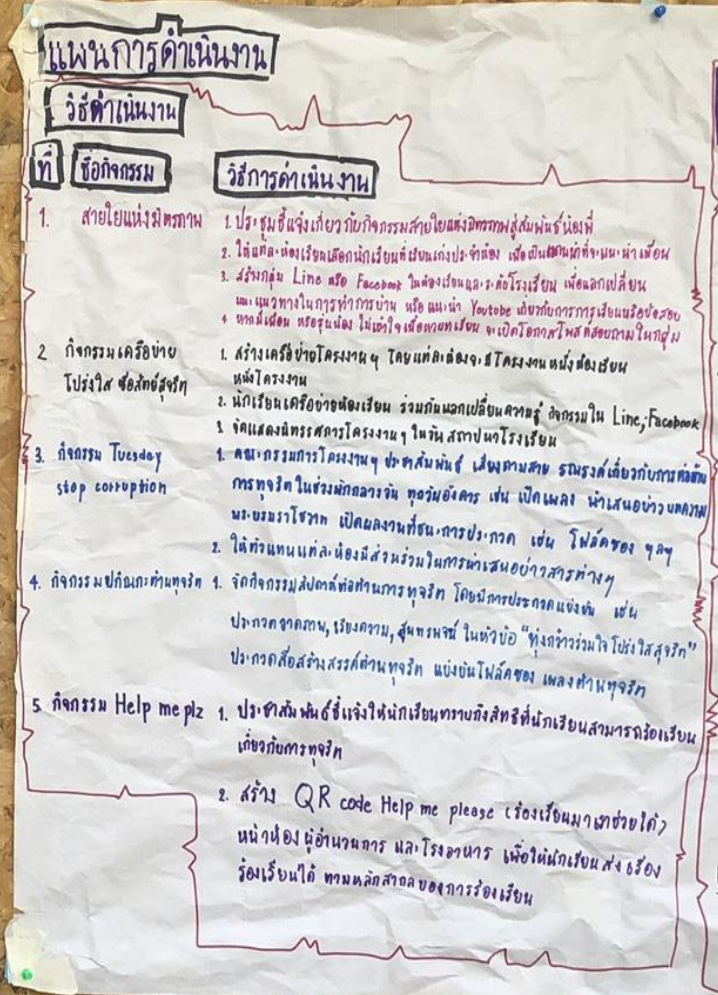 แผนการดำเนินงาน
วิธีดำเนินงาน
ที่ ชื่อกิจกรรม วิธีการดำเนินงาน
1. สายใยแห่งมิตรภาพ 1. ประชุมชี้แจงเกี่ยวกับกิจกรรมสายใยแห่งมิตรภาพสู่สัมพันธ์น้องพี่
2. ให้แต่ละห้องเรียนเลือกนักเรียนที่เรียนเก่งประจำห้อง เพื่อเป็นแกนนำที่จะแนะนำเพื่อน
3. สร้างกลุ่ม Line หรือ Facebook ในห้องเรียนและระดับโรงเรียน เพื่อแลกเปลี่ยน
แนะแนวทางในการทำการบ้าน หรือแนะนำ Youtube เกี่ยวกับการการเรียนหรือข้อสอบ
4 หากมีเพื่อน หรือรุ่นน้อง ไม่เข้าใจเนื้อหาบทเรียน จะเปิดโอกาสโพสต์สอบถามในกลุ่ม
2 กิจกรรมเครือข่าย 1. สร้างเครือข่ายโครงงานฯ โดยแต่ละห้องจะมีโครงงานหนึ่งห้องเรียน
โปร่งใส ซื่อสัตย์สุจริต หนึ่งโครงงาน
2. นักเรียนเครือข่ายห้องเรียน ร่วมกันแลกเปลี่ยนความรู้ กิจกรรมใน Line, Facebook
3. จัดแสดงนิทรรศการโครงงานฯ ในวันสถาปนาโรงเรียน
3. กิจกรรม Tuesday 1. คณะกรรมการโครงงานฯ ประชาสัมพันธ์ เสียงตามสาย รณรงค์เกี่ยวกับการต่อต้าน
stop corruption การทุจริตในช่วงพักกลางวัน ทุกวันอังคาร เช่น เปิดเพลง นำเสนอข่าวบทความ
พระบรมราโชวาท เปิดผลงานที่ชนะการประกวด เช่น โฟล์คซอง ฯลฯ
2. ให้ตัวแทนแต่ละห้องมีส่วนร่วมในการนำเสนอข่าวสารต่างๆ
4. กิจกรรมปกิณกะต้านทุจริต 1. จัดกิจกรรมสัปดาห์ต่อต้านการทุจริต โดยมีการประกวดแข่งขัน เช่น
ประกวดวาดภาพ, เรียงความ, สุนทรพจน์ ในหัวข้อ "ทุ่งกว้าวร่วมใจ โปร่งใสสุจริต"
ประกวดสื่อสร้างสรรค์ต้านทุจริต แข่งขันโฟล์คซอง เพลงต้านทุจริต
5 กิจกรรม Help me plz 1. ประชาสัมพันธ์ชี้แจงให้นักเรียนทราบถึงสิทธิที่นักเรียนสามารถร้องเรียน
เกี่ยวกับการทุจริต
2. สร้าง QR code Help me please (ร้องเรียนมาเราช่วยได้)
หน้าห้องผู้อำนวยการ และโรงอาหาร เพื่อให้นักเรียนส่งเรื่อง
ร้องเรียนได้ ตามหลักสากลของการร้องเรียน